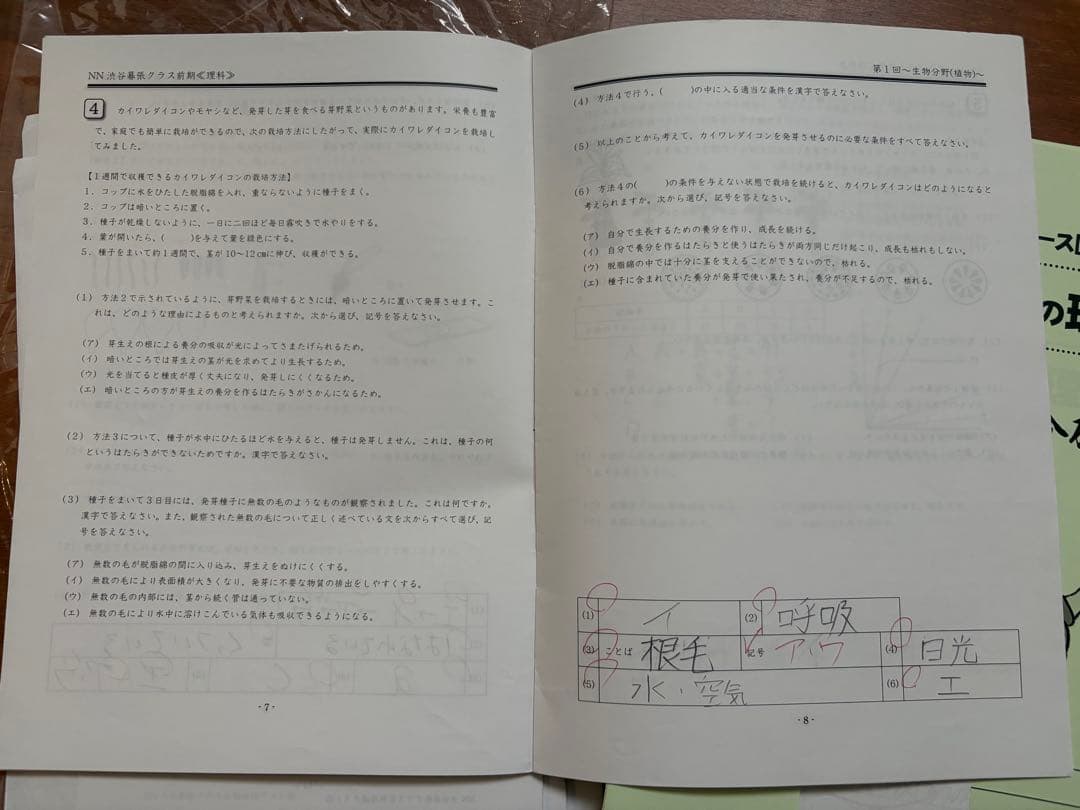 NN渋谷幕張クラス前期≪理科≫
4 カイワレダイコンやモヤシなど、発芽した芽を食べる芽野菜というものがあります。栄養も豊富
で、家庭でも簡単に栽培ができるので、次の栽培方法にしたがって、実際にカイワレダイコンを栽培し
てみました。
【1週間で収穫できるカイワレダイコンの栽培方法】
1．コップに水をひたした脱脂綿を入れ、重ならないように種子をまく。
2．コップは暗いところに置く。
3．種子が乾燥しないように、一日に二回ほど毎日霧吹きで水やりをする。
4．葉が開いたら、(　　)を与えて葉を緑色にする。
5．種子をまいて約1週間で、茎が10～12㎝に伸び、収穫ができる。
(1) 方法2で示されているように、芽野菜を栽培するときには、暗いところに置いて発芽させます。こ
れは、どのような理由によるものと考えられますか。次から選び、記号を答えなさい。
(ア) 芽生えの根による養分の吸収が光によってさまたげられるため。
(イ) 暗いところでは芽生えの茎が光を求めてより生長するため。
(ウ) 光を当てると種皮が厚く丈夫になり、発芽しにくくなるため。
(エ) 暗いところの方が芽生えの養分を作るはたらきがさかんになるため。
(2) 方法3について、種子が水中にひたるほど水を与えると、種子は発芽しません。これは、種子の何
というはたらきができないためですか。漢字で答えなさい。
(3) 種子をまいて3日目には、発芽種子に無数の毛のようなものが観察されました。これは何ですか。
漢字で答えなさい。また、観察された無数の毛について正しく述べている文を次からすべて選び、記
号を答えなさい。
(ア) 無数の毛が脱脂綿の間に入り込み、芽生えをぬけにくくする。
(イ) 無数の毛により表面積が大きくなり、発芽に不要な物質の排出をしやすくする。
(ウ) 無数の毛の内部には、茎から続く管は通っていない。
(エ) 無数の毛により水中に溶けこんでいる気体も吸収できるようになる。
- 7 -
第1回～生物分野(植物)～
(4) 方法4で行う、(　　)の中に入る適当な条件を漢字で答えなさい。
(5) 以上のことから考えて、カイワレダイコンを発芽させるのに必要な条件をすべて答えなさい。
(6) 方法4の(　　)の条件を与えない状態で栽培を続けると、カイワレダイコンはどのようになると
考えられますか。次から選び、記号を答えなさい。
(ア) 自分で生長するための養分を作り、成長を続ける。
(イ) 自分で養分を作るはたらきと使うはたらきが両方同じだけ起こり、成長も枯れもしない。
(ウ) 脱脂綿の中では十分に茎を支えることができないので、枯れる。
(エ) 種子に含まれていた養分が発芽で使い果たされ、養分が不足するので、枯れる。
(1) イ (2) 呼吸
(3) ことば 根毛 記号 ア、ウ (4) 日光
(5) 水・空気 (6) エ
- 8 -